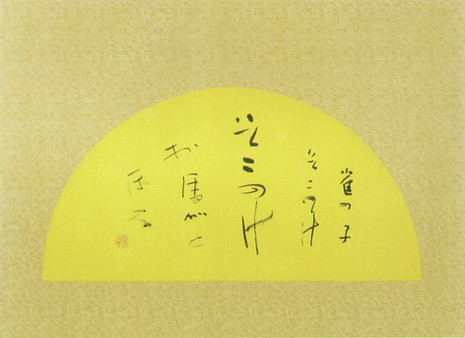 雀の子
そこのけ
そこのけ
お馬がと
ほる